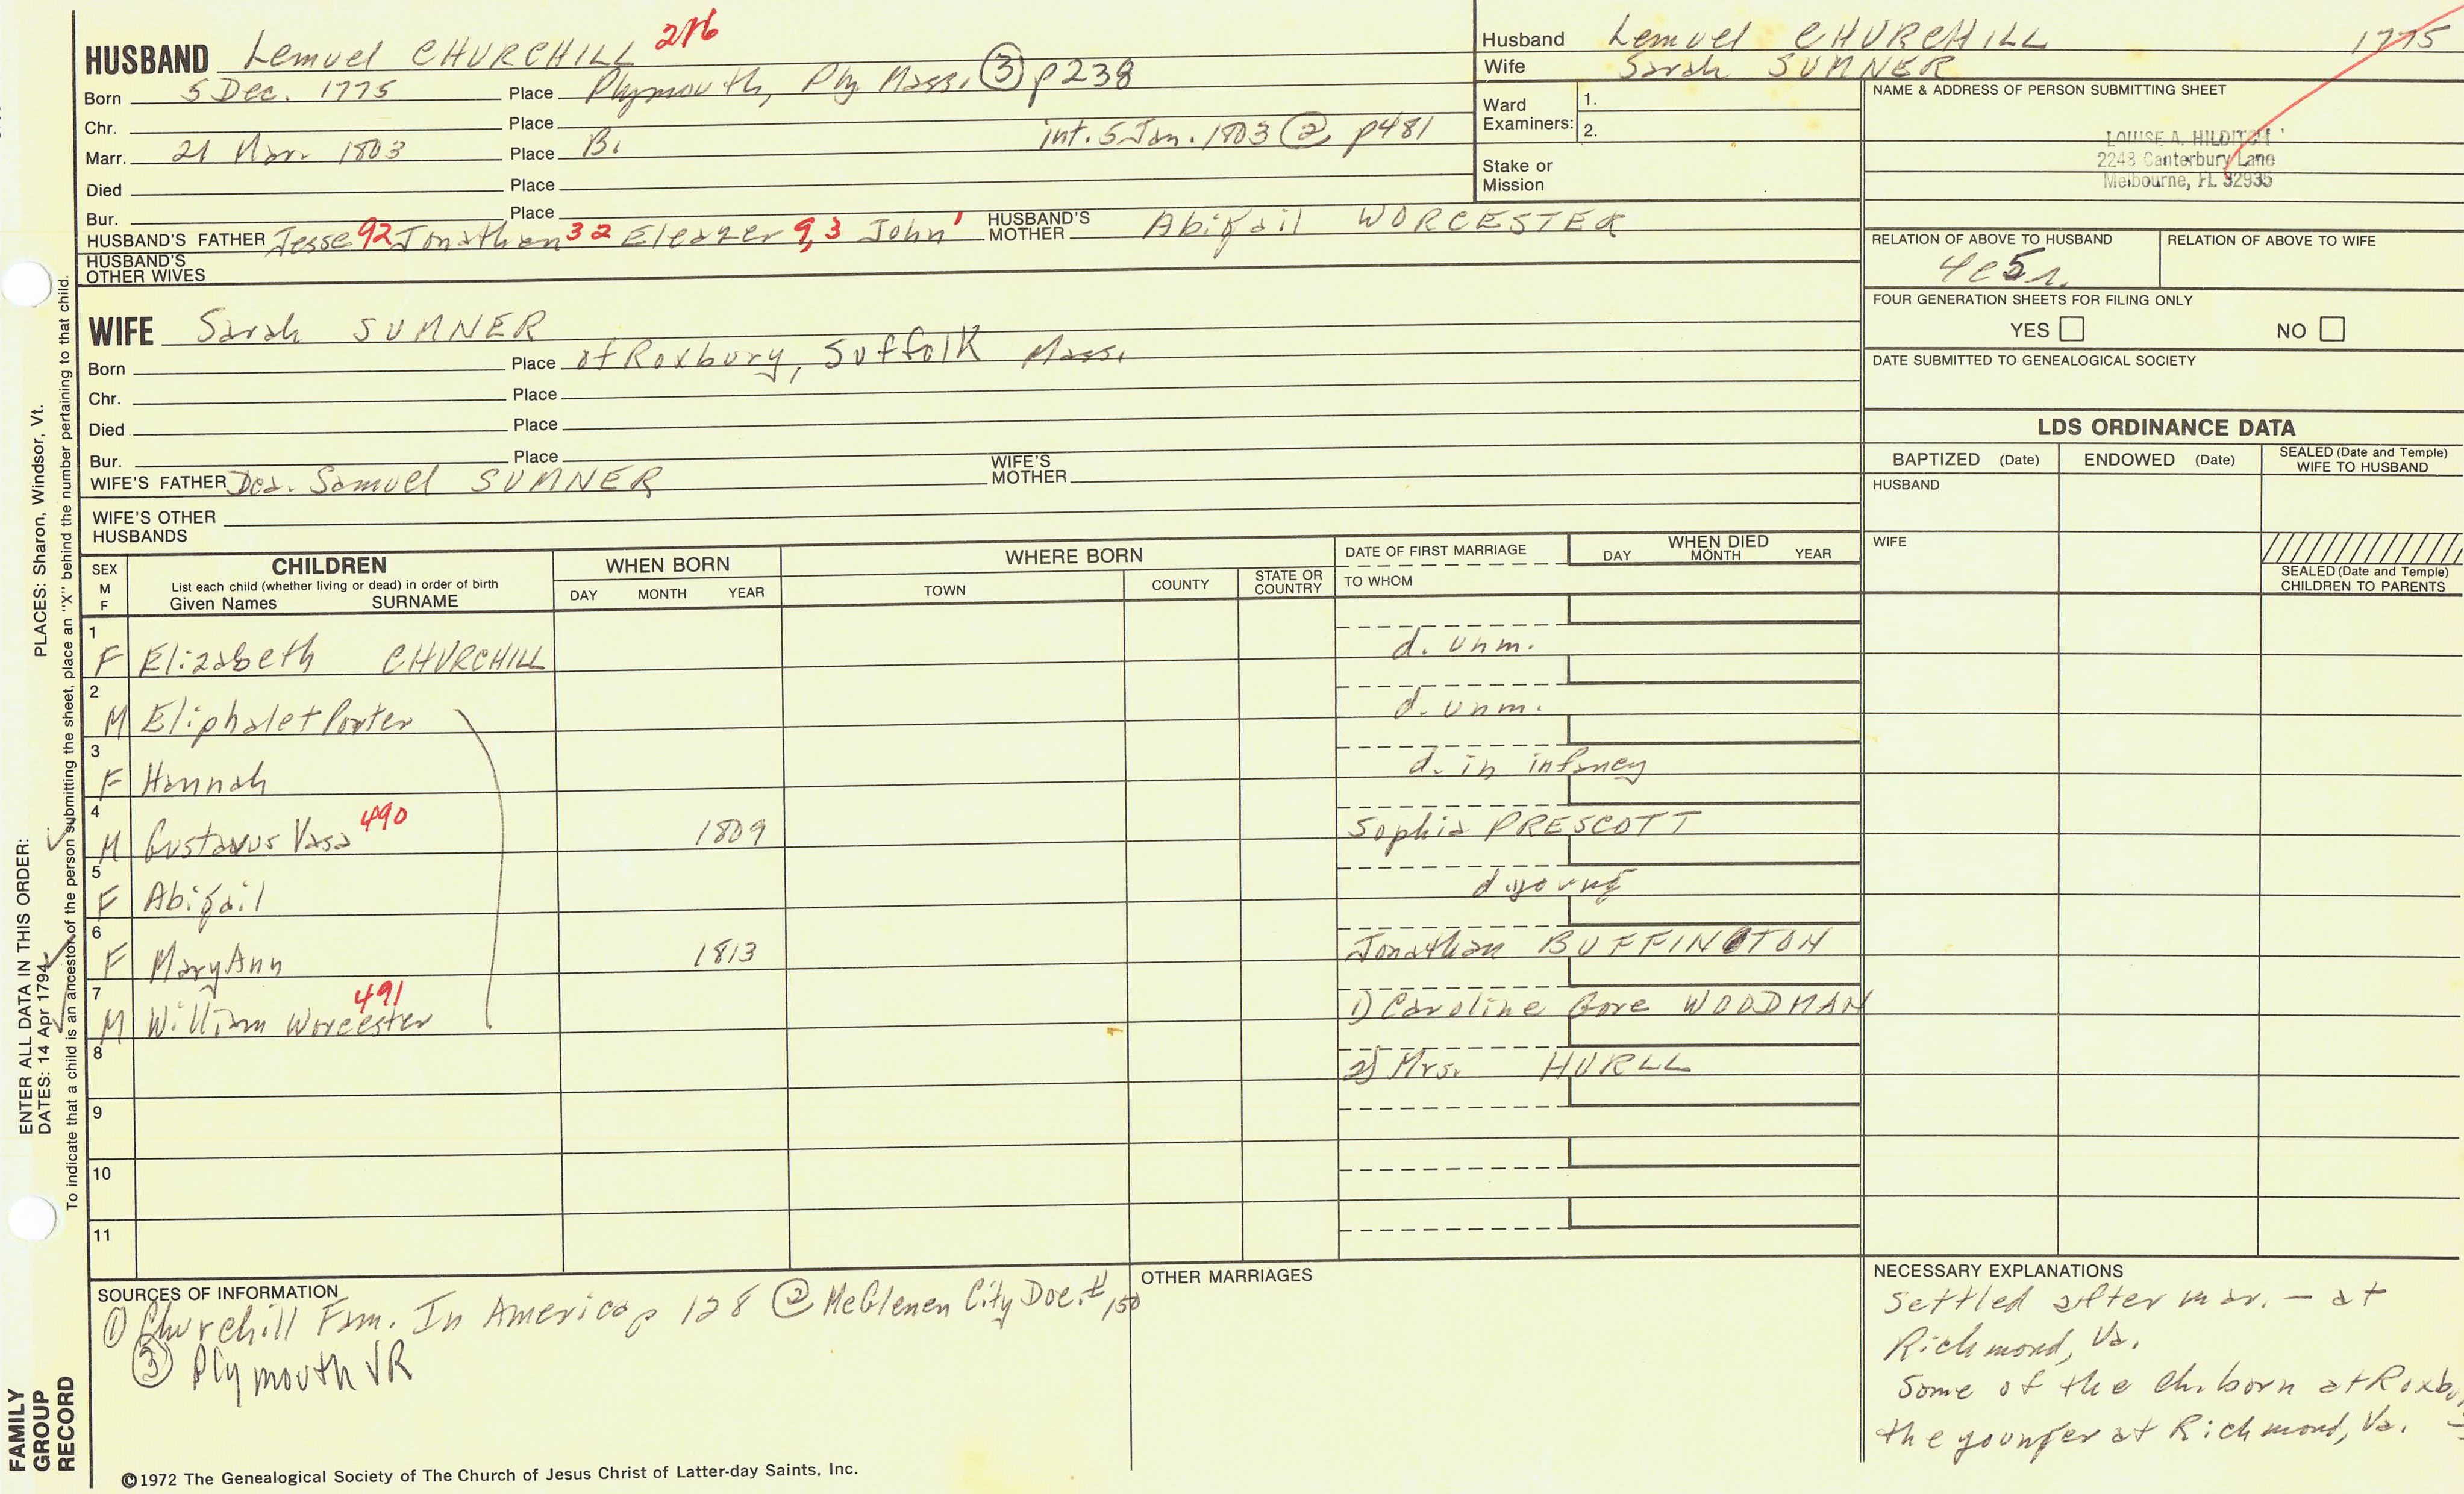 HUSBAND Lemuel CHURCHILL 216
Born 5 Dec. 1775 Place Plymouth, Ply Mass. ③ p238
Chr. Place
Marr. 21 Mar. 1803 Place B. int. 5 Jan. 1803 ② p481
Died Place
Bur. Place
HUSBAND'S FATHER Jesse 92 Jonathan 32 Eleazer 9,3 John 1 HUSBAND'S MOTHER Abigail WORCESTER
HUSBAND'S OTHER WIVES
Husband Lemuel CHURCHILL 1775
Wife Sarah SUMNER
Ward Examiners: 1.
2.
Stake or Mission
NAME & ADDRESS OF PERSON SUBMITTING SHEET
LOUISE A. HILDITCH
2248 Canterbury Lane
Melbourne, FL 32935
RELATION OF ABOVE TO HUSBAND RELATION OF ABOVE TO WIFE
4c5r.
FOUR GENERATION SHEETS FOR FILING ONLY
YES NO
DATE SUBMITTED TO GENEALOGICAL SOCIETY
WIFE Sarah SUMNER
Born Place of Roxbury, Suffolk Mass.
Chr. Place
Died Place
Bur. Place
WIFE'S FATHER Dea. Samuel SUMNER WIFE'S MOTHER
WIFE'S OTHER HUSBANDS
LDS ORDINANCE DATA
BAPTIZED (Date) ENDOWED (Date) SEALED (Date and Temple) WIFE TO HUSBAND
HUSBAND
WIFE
SEALED (Date and Temple) CHILDREN TO PARENTS
SEX M F
CHILDREN
List each child (whether living or dead) in order of birth
Given Names SURNAME
WHEN BORN
DAY MONTH YEAR
WHERE BORN
TOWN COUNTY STATE OR COUNTRY
DATE OF FIRST MARRIAGE
TO WHOM
WHEN DIED
DAY MONTH YEAR
1 F Elizabeth CHURCHILL d. unm.
2 M Eliphalet Porter d. unm.
3 F Hannah d. in infancy
4 M Gustavus Vasa 490 1809 Sophia PRESCOTT
5 F Abigail d. young
6 F Mary Ann 1813 Jonathan BUFFINGTON
7 M William Worcester 491 1) Caroline Gore WOODMAN
8 2) Mrs. HURLL
9
10
11
SOURCES OF INFORMATION
① Churchill Fam. In America p 128 ② McGlenen City Doc. # 150
③ Plymouth VR
OTHER MARRIAGES
NECESSARY EXPLANATIONS
Settled after mar. – at
Richmond, Va.
Some of the ch. born at Roxbury
the younger at Richmond, Va.
©1972 The Genealogical Society of The Church of Jesus Christ of Latter-day Saints, Inc.
FAMILY GROUP RECORD
ENTER ALL DATA IN THIS ORDER:
DATES: 14 Apr 1794 PLACES: Sharon, Windsor, Vt.
To indicate that a child is an ancestor of the person submitting the sheet, place an "X" behind the number pertaining to that child.